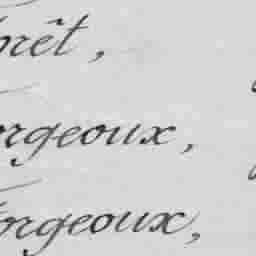 orêt,
orgeoux,
orgeoux,